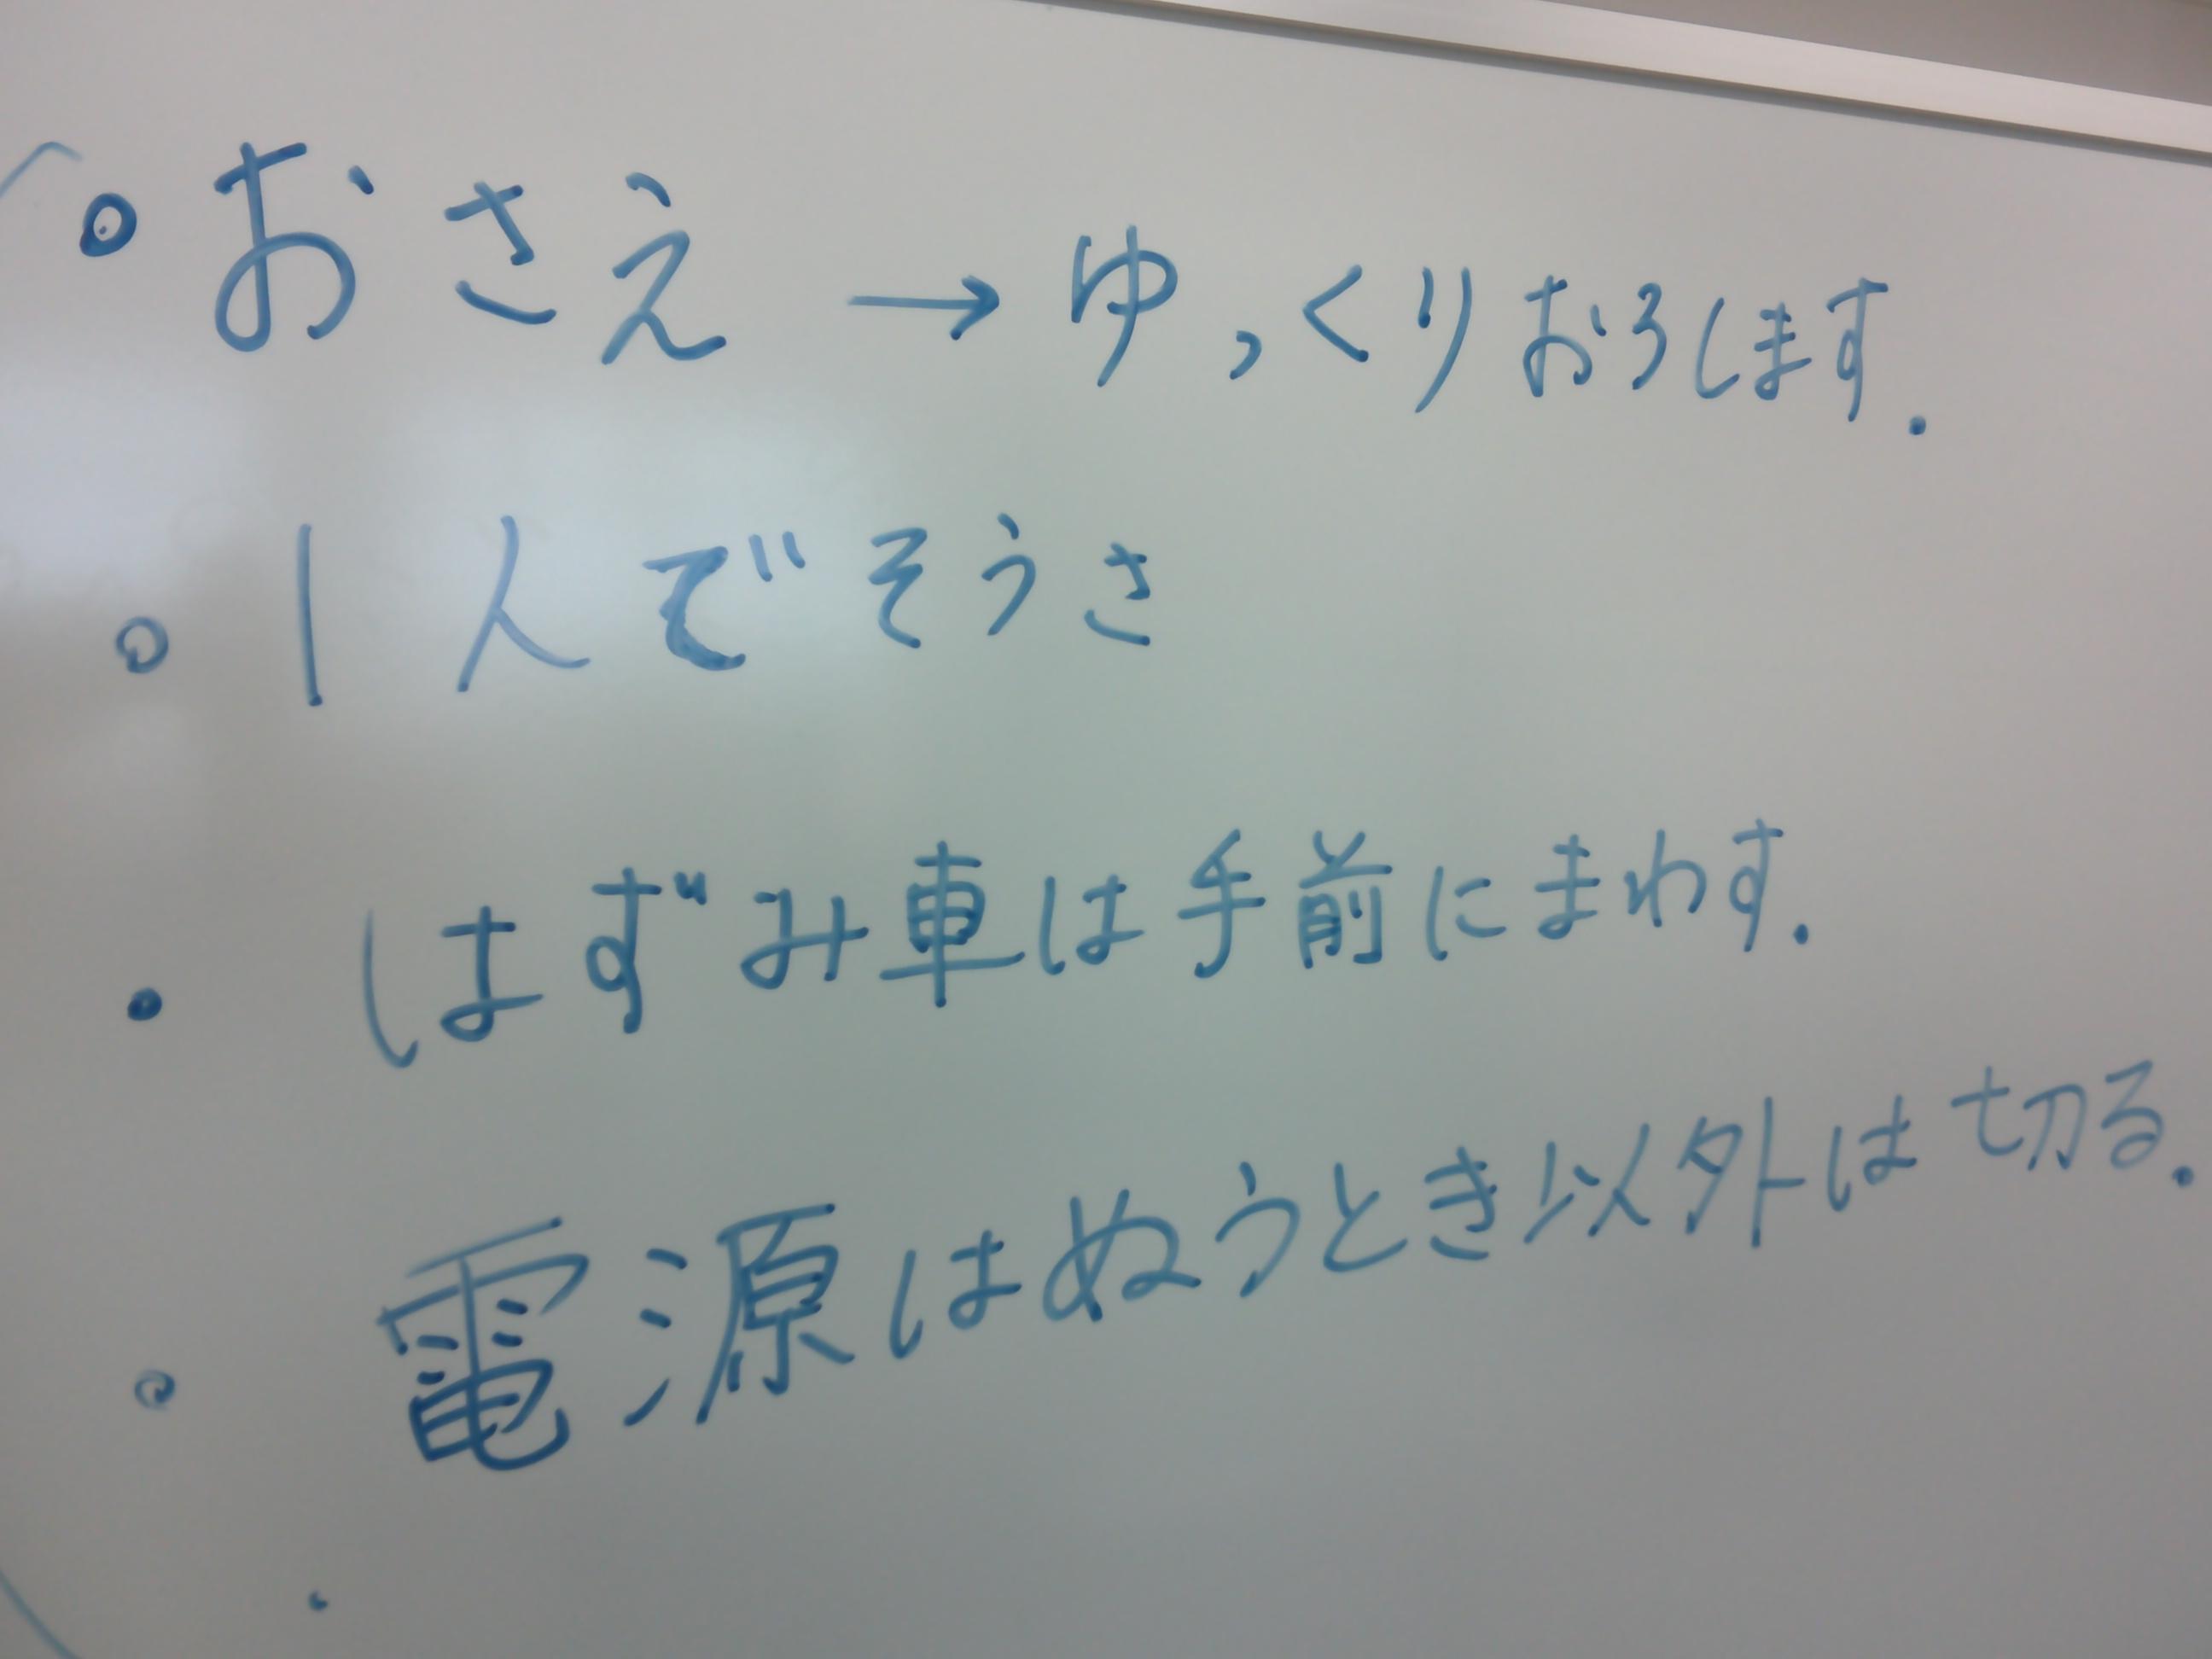 。おさえ → ゆっくりおろします.
。1人でそうさ
・はずみ車は手前にまわす.
・電源はぬうとき以外は切る.
・